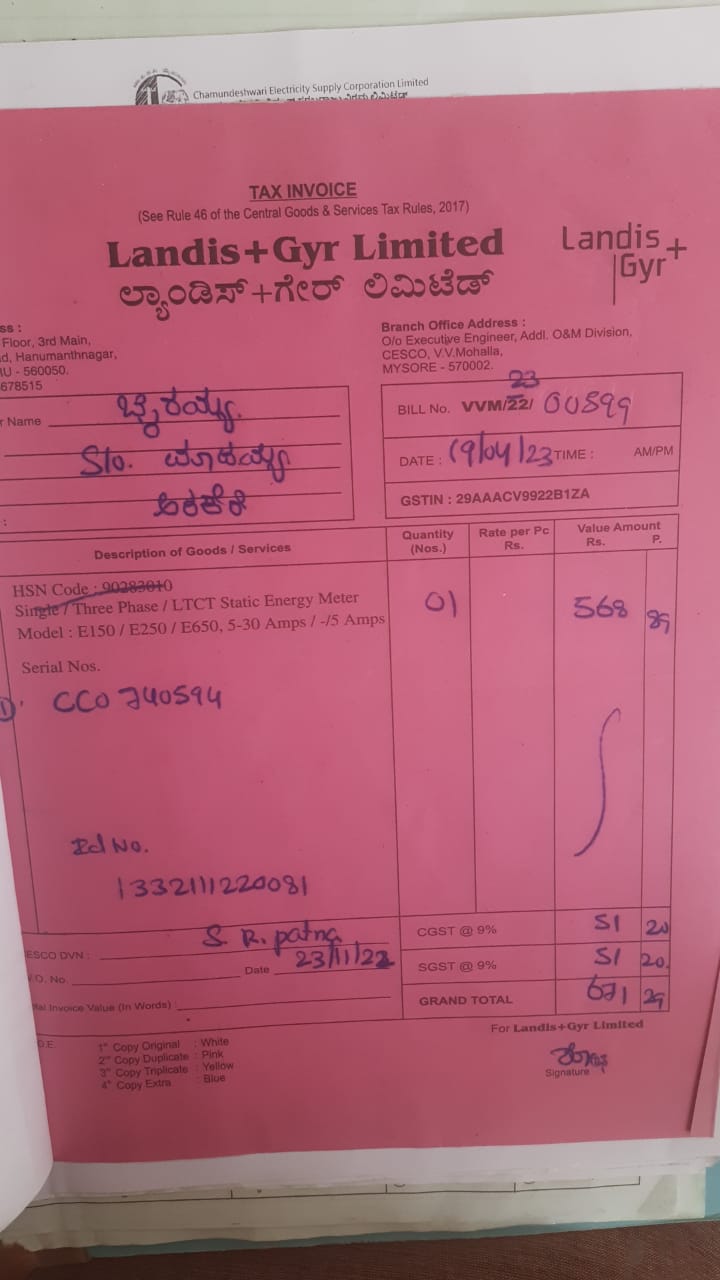 Chamundeshwari Electricity Supply Corporation Limited
TAX INVOICE
(See Rule 46 of the Central Goods & Services Tax Rules, 2017)
Landis+Gyr Limited
ಲ್ಯಾಂಡಿಸ್+ಗೇರ್ ಲಿಮಿಟೆಡ್
Landis+
Gyr
ss :
Floor, 3rd Main,
d, Hanumanthnagar,
U - 560050.
678515
Branch Office Address :
O/o Executive Engineer, Addl. O&M Division,
CESCO, V.V.Mohalla,
MYSORE - 570002.
r Name
S/o.
ಅರಕೆರೆ
:
23
BILL No. VVM/22/ 00899
DATE : 19/04/23 TIME : AM/PM
GSTIN : 29AAACV9922B1ZA
Description of Goods / Services
Quantity
(Nos.)
Rate per Pc
Rs.
Value Amount
Rs. P.
HSN Code : 90283010
Single / Three Phase / LTCT Static Energy Meter
Model : E150 / E250 / E650, 5-30 Amps / -/5 Amps
01
568 89
Serial Nos.
1) CCO 740594
Rd No.
1332111220081
ESCO DVN : S. R. patna
.O. No. Date 23/11/22
tal Invoice Value (In Words)
CGST @ 9% 51 20
SGST @ 9% 51 20
GRAND TOTAL 671 29
For Landis+Gyr Limited
Signature
O.E.
1st Copy Original : White
2nd Copy Duplicate : Pink
3rd Copy Triplicate : Yellow
4th Copy Extra : Blue